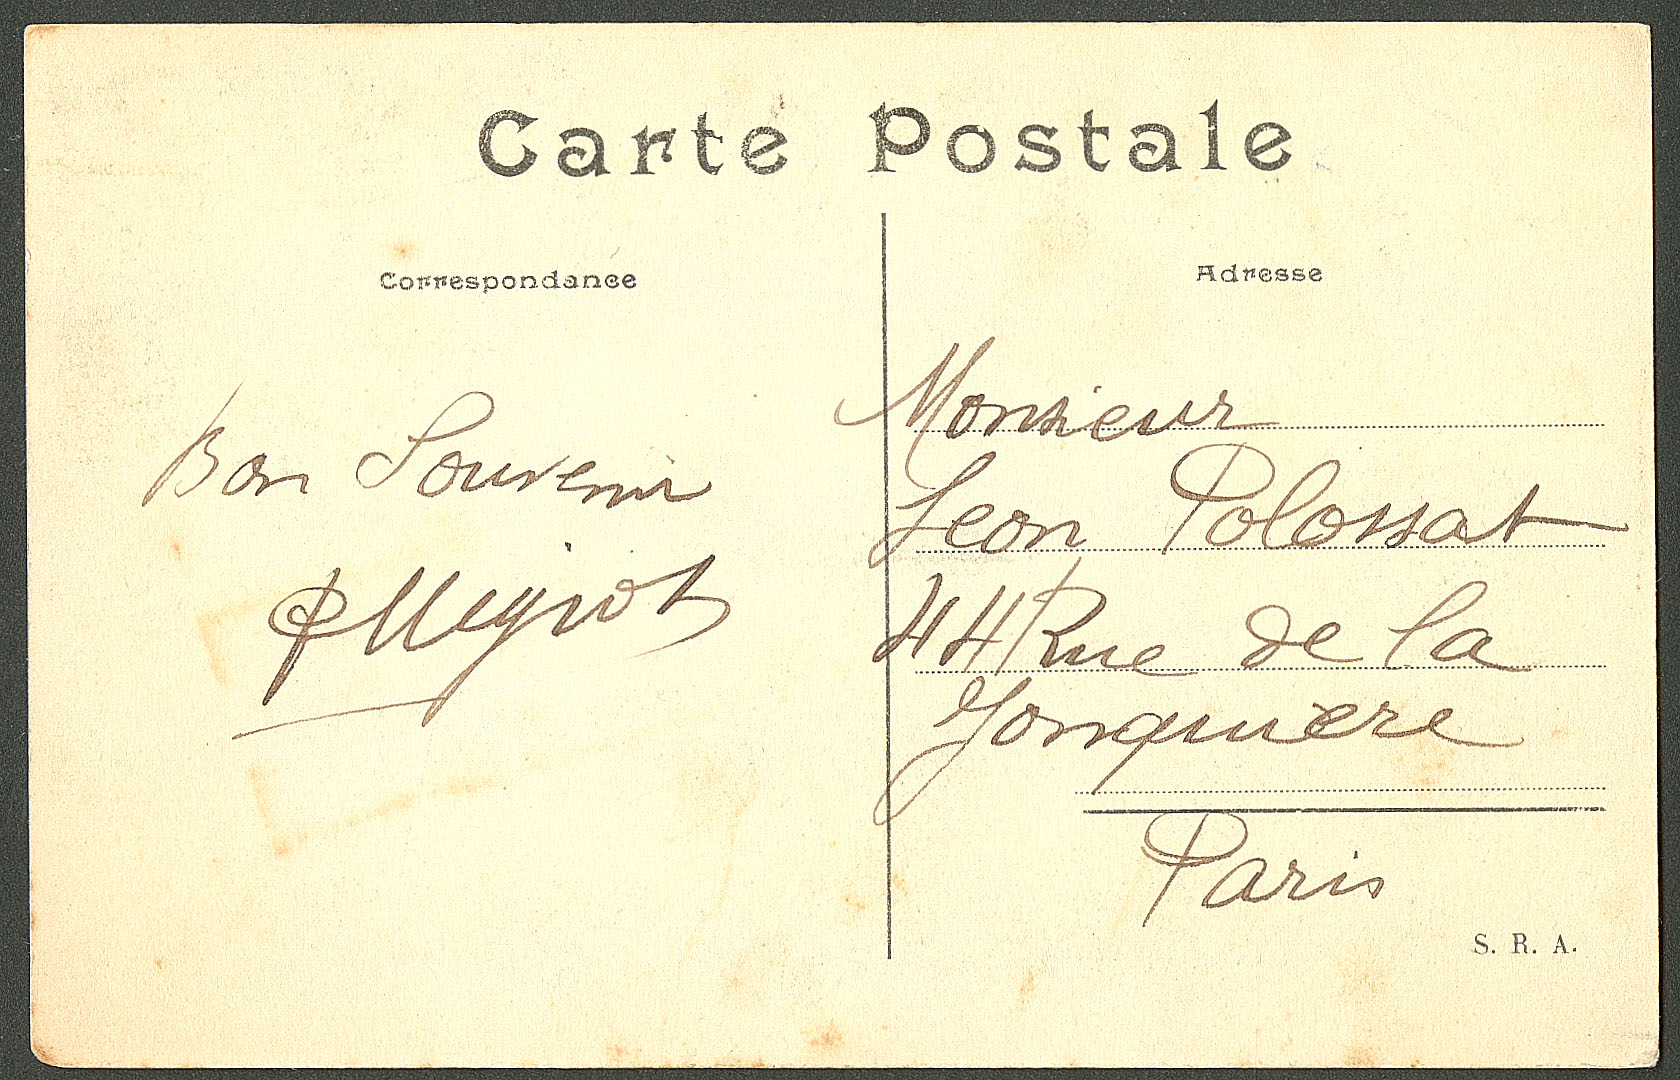 Carte Postale
Correspondance
Bon Souvenir
Adresse
Monsieur
Leon Polossat
44 Rue de la
Jonquière
Paris
S. R. A.